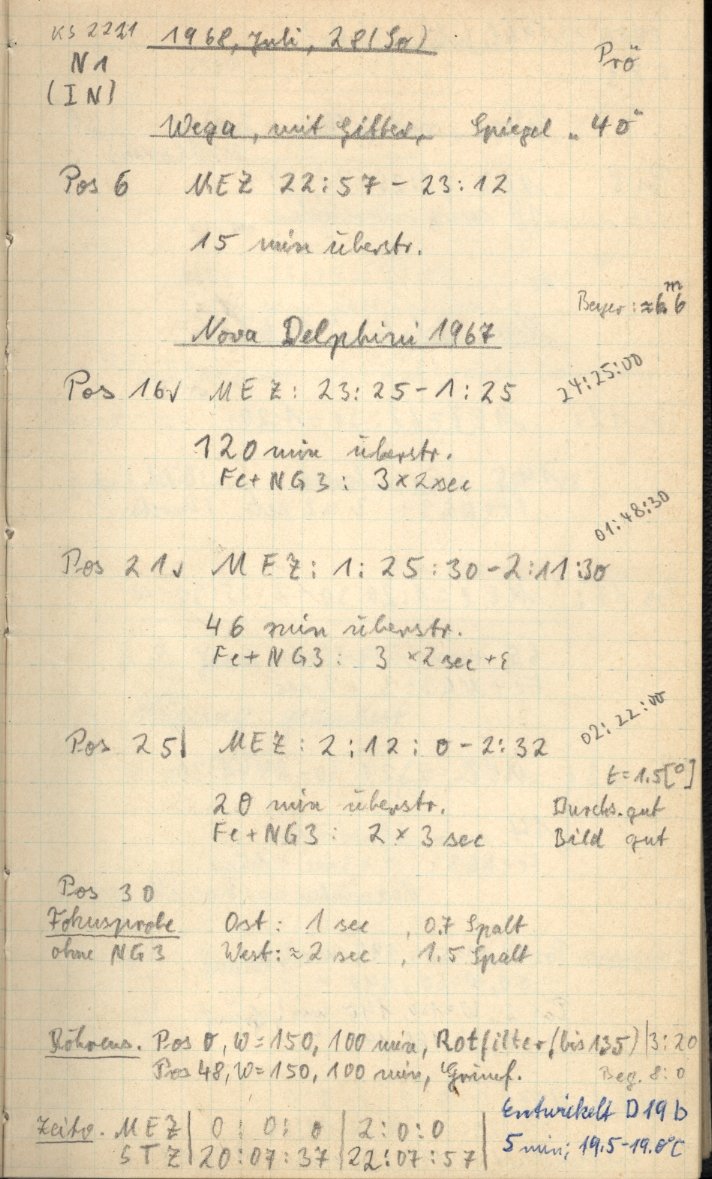 KS 2221 1968, Juli, 28 (So)
N1 Prö
(IN)
Wega, mit Gitter, Spiegel "40"
Pos 6 MEZ 22:57 - 23:12
15 min überstr.
Beyer: ≈ 6 m
Nova Delphini 1967
Pos 16v MEZ: 23:25 - 1:25 24:25:00
120 min überstr.
Fe+NG3: 3×2sec
01:48:30
Pos 21v MEZ: 1:25:30 - 2:11:30
46 min überstr.
Fe+NG3: 3 ×2 sec + ε
02:22:00
Pos 25 MEZ: 2:12:0 - 2:32
t = 1.5[°]
20 min überstr. Durchs. gut
Fe+NG3: 2 × 3 sec Bild gut
Pos 30
Fokusprobe Ost: 1 sec , 0.7 Spalt
ohne NG3 West: ≈2 sec , 1.5 Spalt
Röhrens. Pos 0, W=150, 100 min, Rotfilter (bis 135) | 3:20
Pos 48, W=150, 100 min, Grünf. Beg. 8:0
Entwickelt D19b
Zeitv. MEZ | 0 : 0 : 0 | 2:0:0 |
5 min; 19.5-19.0°C
STZ | 20:07:37 | 22:07:57 |